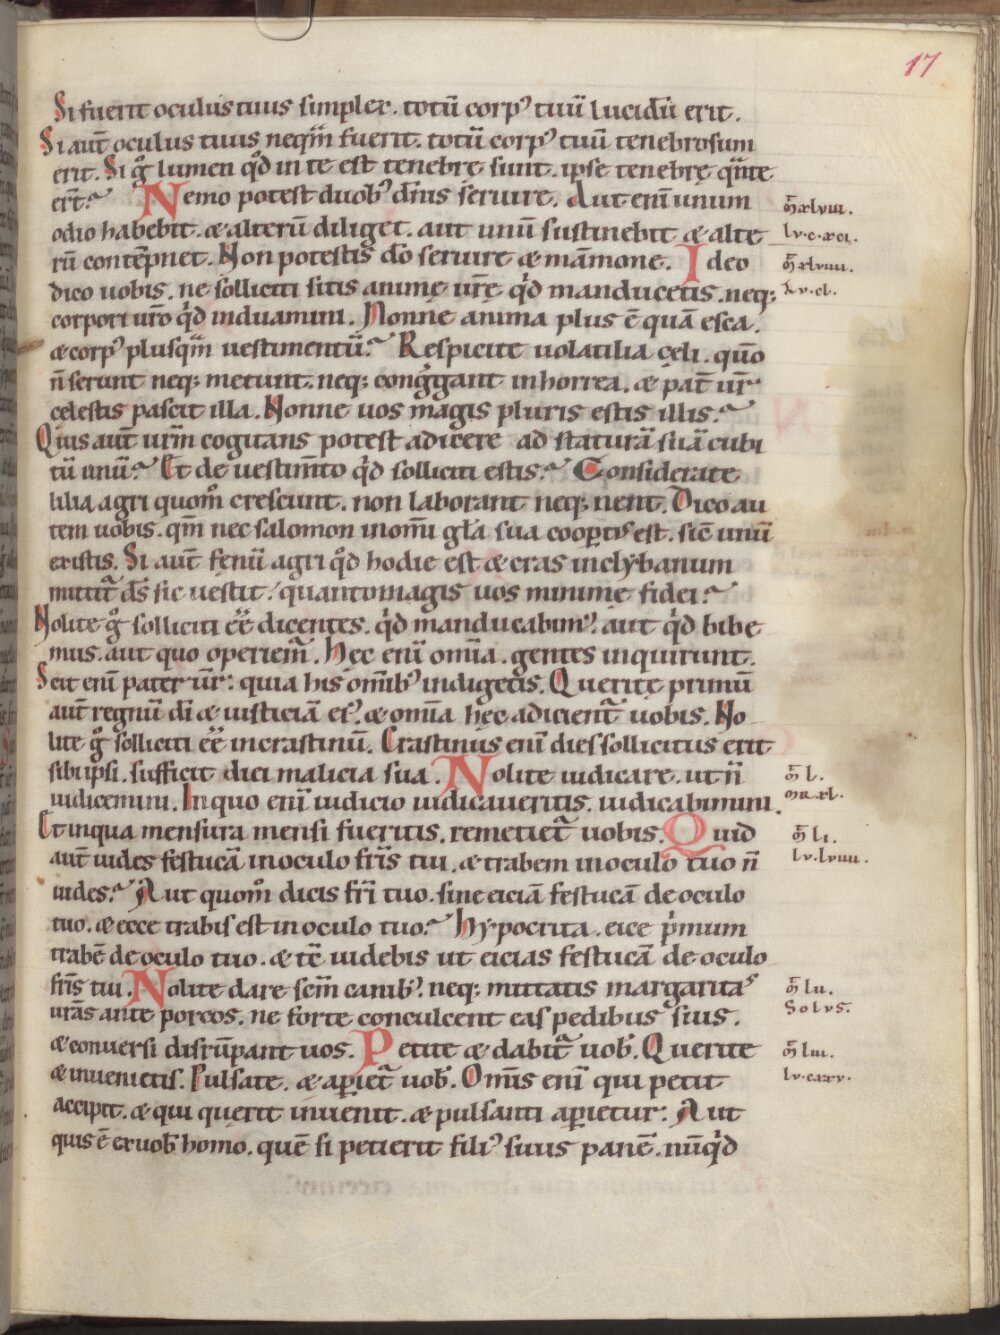 17
Si fuerit oculus tuus simplex. totū corpꝰ tuū lucidū erit.
Si aūt oculus tuus neq̄m fuerit. totū corpꝰ tuū tenebrosum
erit. Si gͦ lumen qͥd in te est tenebrę sunt. ipse tenebrę qͣnte
erūt? Nemo potest duobꝰ dn̄is seruire. Aut enī unum
odio habebit. & alterū diliget. aut unū sustinebit & alte
rū contēpnet. Non potestis dō seruire & māmone. Ideo
dico uobis. ne solliciti sitis animę ur̄ę qͥd manducetis. neq;
corpori ur̄o qͥd induamini. Nonne anima plus ē quā esca.
& corpꝰ plusq̄m uestimentū? Respicite uolatilia cęli. quō
n̄ serunt neq; metunt. neq; congͣgant in horrea. & pat̄ ur̄
celestis pascit illa. Nonne uos magis pluris estis illis?
Quis aūt ur̄m cogitans potest adicere ad staturā suā cubi
tū unū? Et de uestim̄to qͥd solliciti estis? Considerate
lilia agri quom̊ crescunt. non laborant neq; nent. Dico au
tem uobis. qm̄ nec salomon in om̄i gl̄a sua coopertꝰ est. sic unū
ex istis. Si aūt fęnū agri qͥd hodie est & cras in clybanum
mittit᷑ dš sic uestit. quantomagis uos minime fidei?
Nolite gͦ solliciti eē dicentes. qͥd manducabimꝰ. aut qͥd bibe
mus. aut quo operiem᷑. Hec enī om̄ia. gentes inquirunt.
Scit enī pater ur̄. quia his om̄ibꝰ indigetis. Querite primū
aūt regnū dī & iusticiā eiꝰ. & om̄ia hęc adicient᷑ uobis. No
lite gͦ solliciti eē in crastinū. Crastinus enī dies sollicitus erit
sibi ipsi. sufficit diei malicia sua. Nolite iudicare. ut n̄
iudicemini. In quo enī iudicio iudicaueritis. iudicabimini.
Et in qua mensura mensi fueritis. remetiet᷑ uobis. Quid
aūt uides festucā in oculo fr̄is tui. & trabem in oculo tuo n̄
uides? Aut quom̊ dicis fr̄i tuo. sine eiciā festucā de oculo
tuo. & ecce trabis est in oculo tuo? Hypocrita. eice pͥmum
trabē de oculo tuo. & tc̄ uidebis ut eicias festucā de oculo
fr̄is tui. Nolite dare sc̄m canibꝰ. neq; mittatis margaritas
ur̄as ante porcos. ne forte conculcent eas pedibus suis.
& conuersi disrūpant uos. Petite & dabit᷑ uob̄. Querite
& inuenietis. Pulsate. & apiet᷑ uob̄. Omīs enī qui petit
accipit. & qui querit inuenit. & pulsanti apietur. Aut
quis ē ex uob̄ homo. quē si petierit filiꝰ suus panē. nūqͥd
m̄ xlviii.
lv. c. xci.
m̄ xlviiii.
lv. cl.
m̄ l.
mr. xl.
m̄ li.
lv. lviiii.
m̄ lii.
Solvs.
m̄ liii.
lv. cxxv.